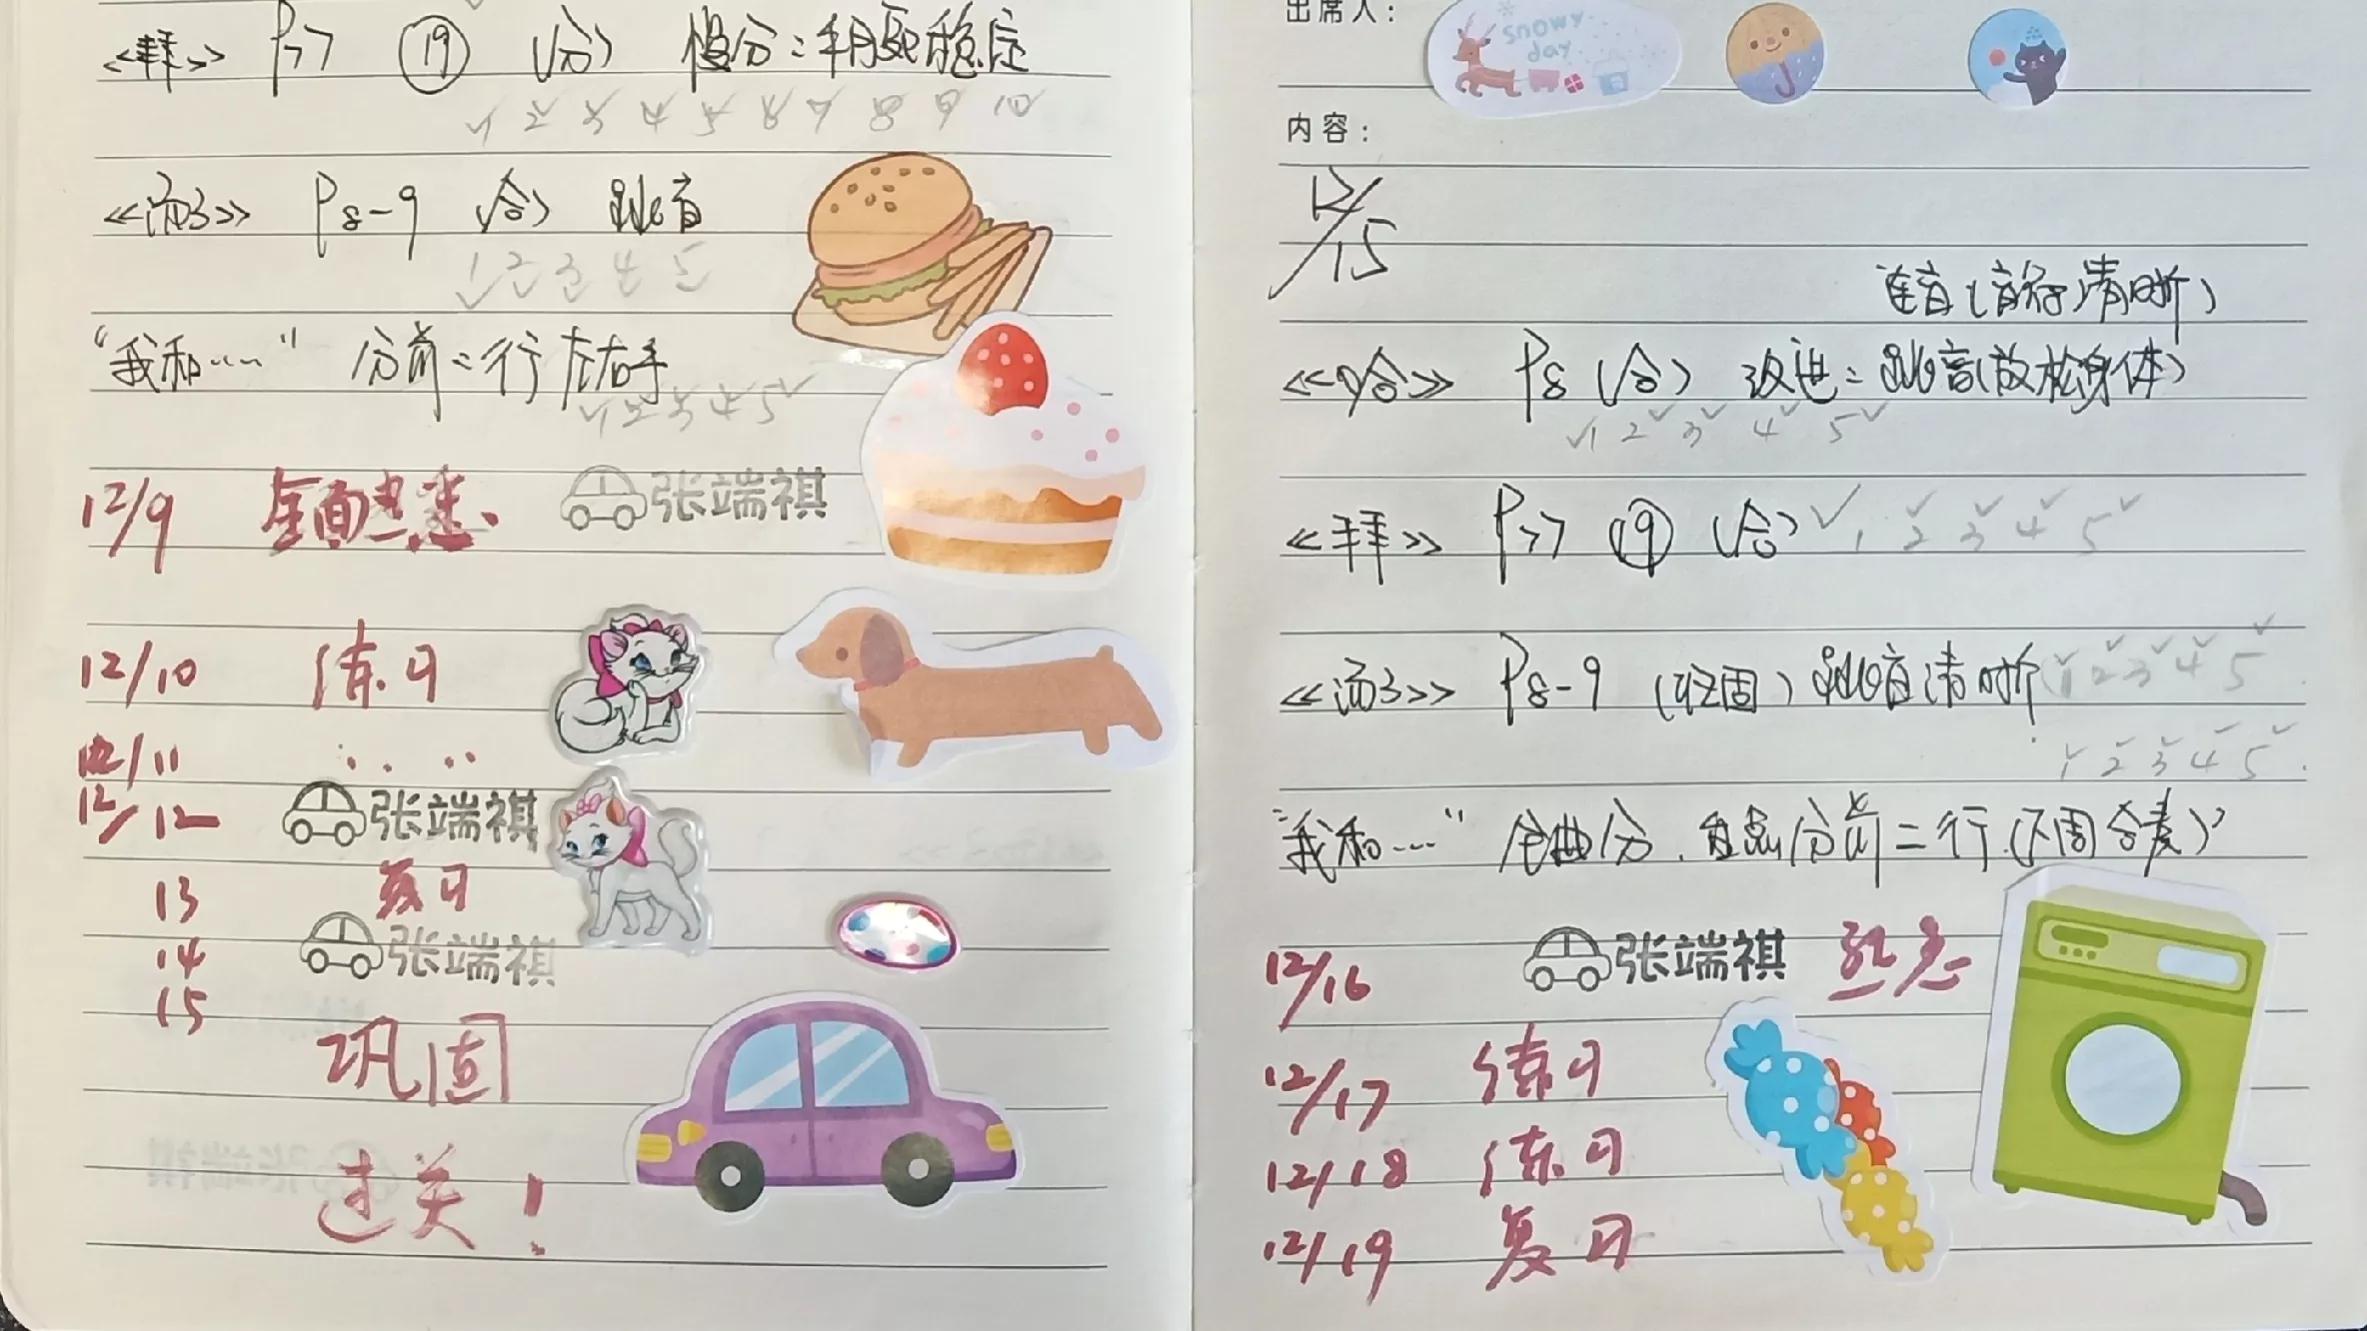 《拜》 P77 ⑲ (分) 慢分：手腕稳定
1 2 3 4 5 6 7 8 9 10
《汤3》 P8-9 (合) 跳音
1 2 3 4 5
“我和……” 分前二行 左右手
1 2 3 4 5
12/9 全面熟悉. 张端祺
12/10 练习
12/11
12/12 张端祺
13 复习
14 张端祺
15
巩固
过关!
出席人:
snowy
day
内容:
12/15
连音(音符清晰)
《哈》 P8 (合) 改进: 跳音(放松身体)
1 2 3 4 5
《拜》 P77 ⑲ (合) 1 2 3 4 5
《汤3》 P8-9 (巩固) 跳音清晰 1 2 3 4 5
1 2 3 4 5
“我和……” 全曲分, 重点分前二行.(下周合奏)
12/16 张端祺 熟悉
12/17 练习
12/18 练习
12/19 复习